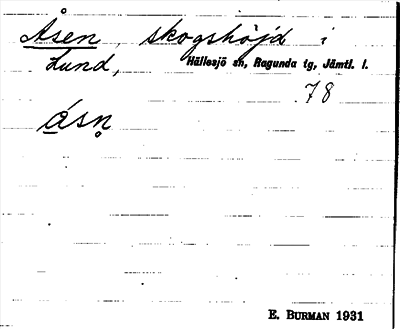 Åsen, skogshöjd i
Lund, Hällesjö sn, Ragunda tg, Jämtl. l.
78
ásn̥
E. BURMAN 1931